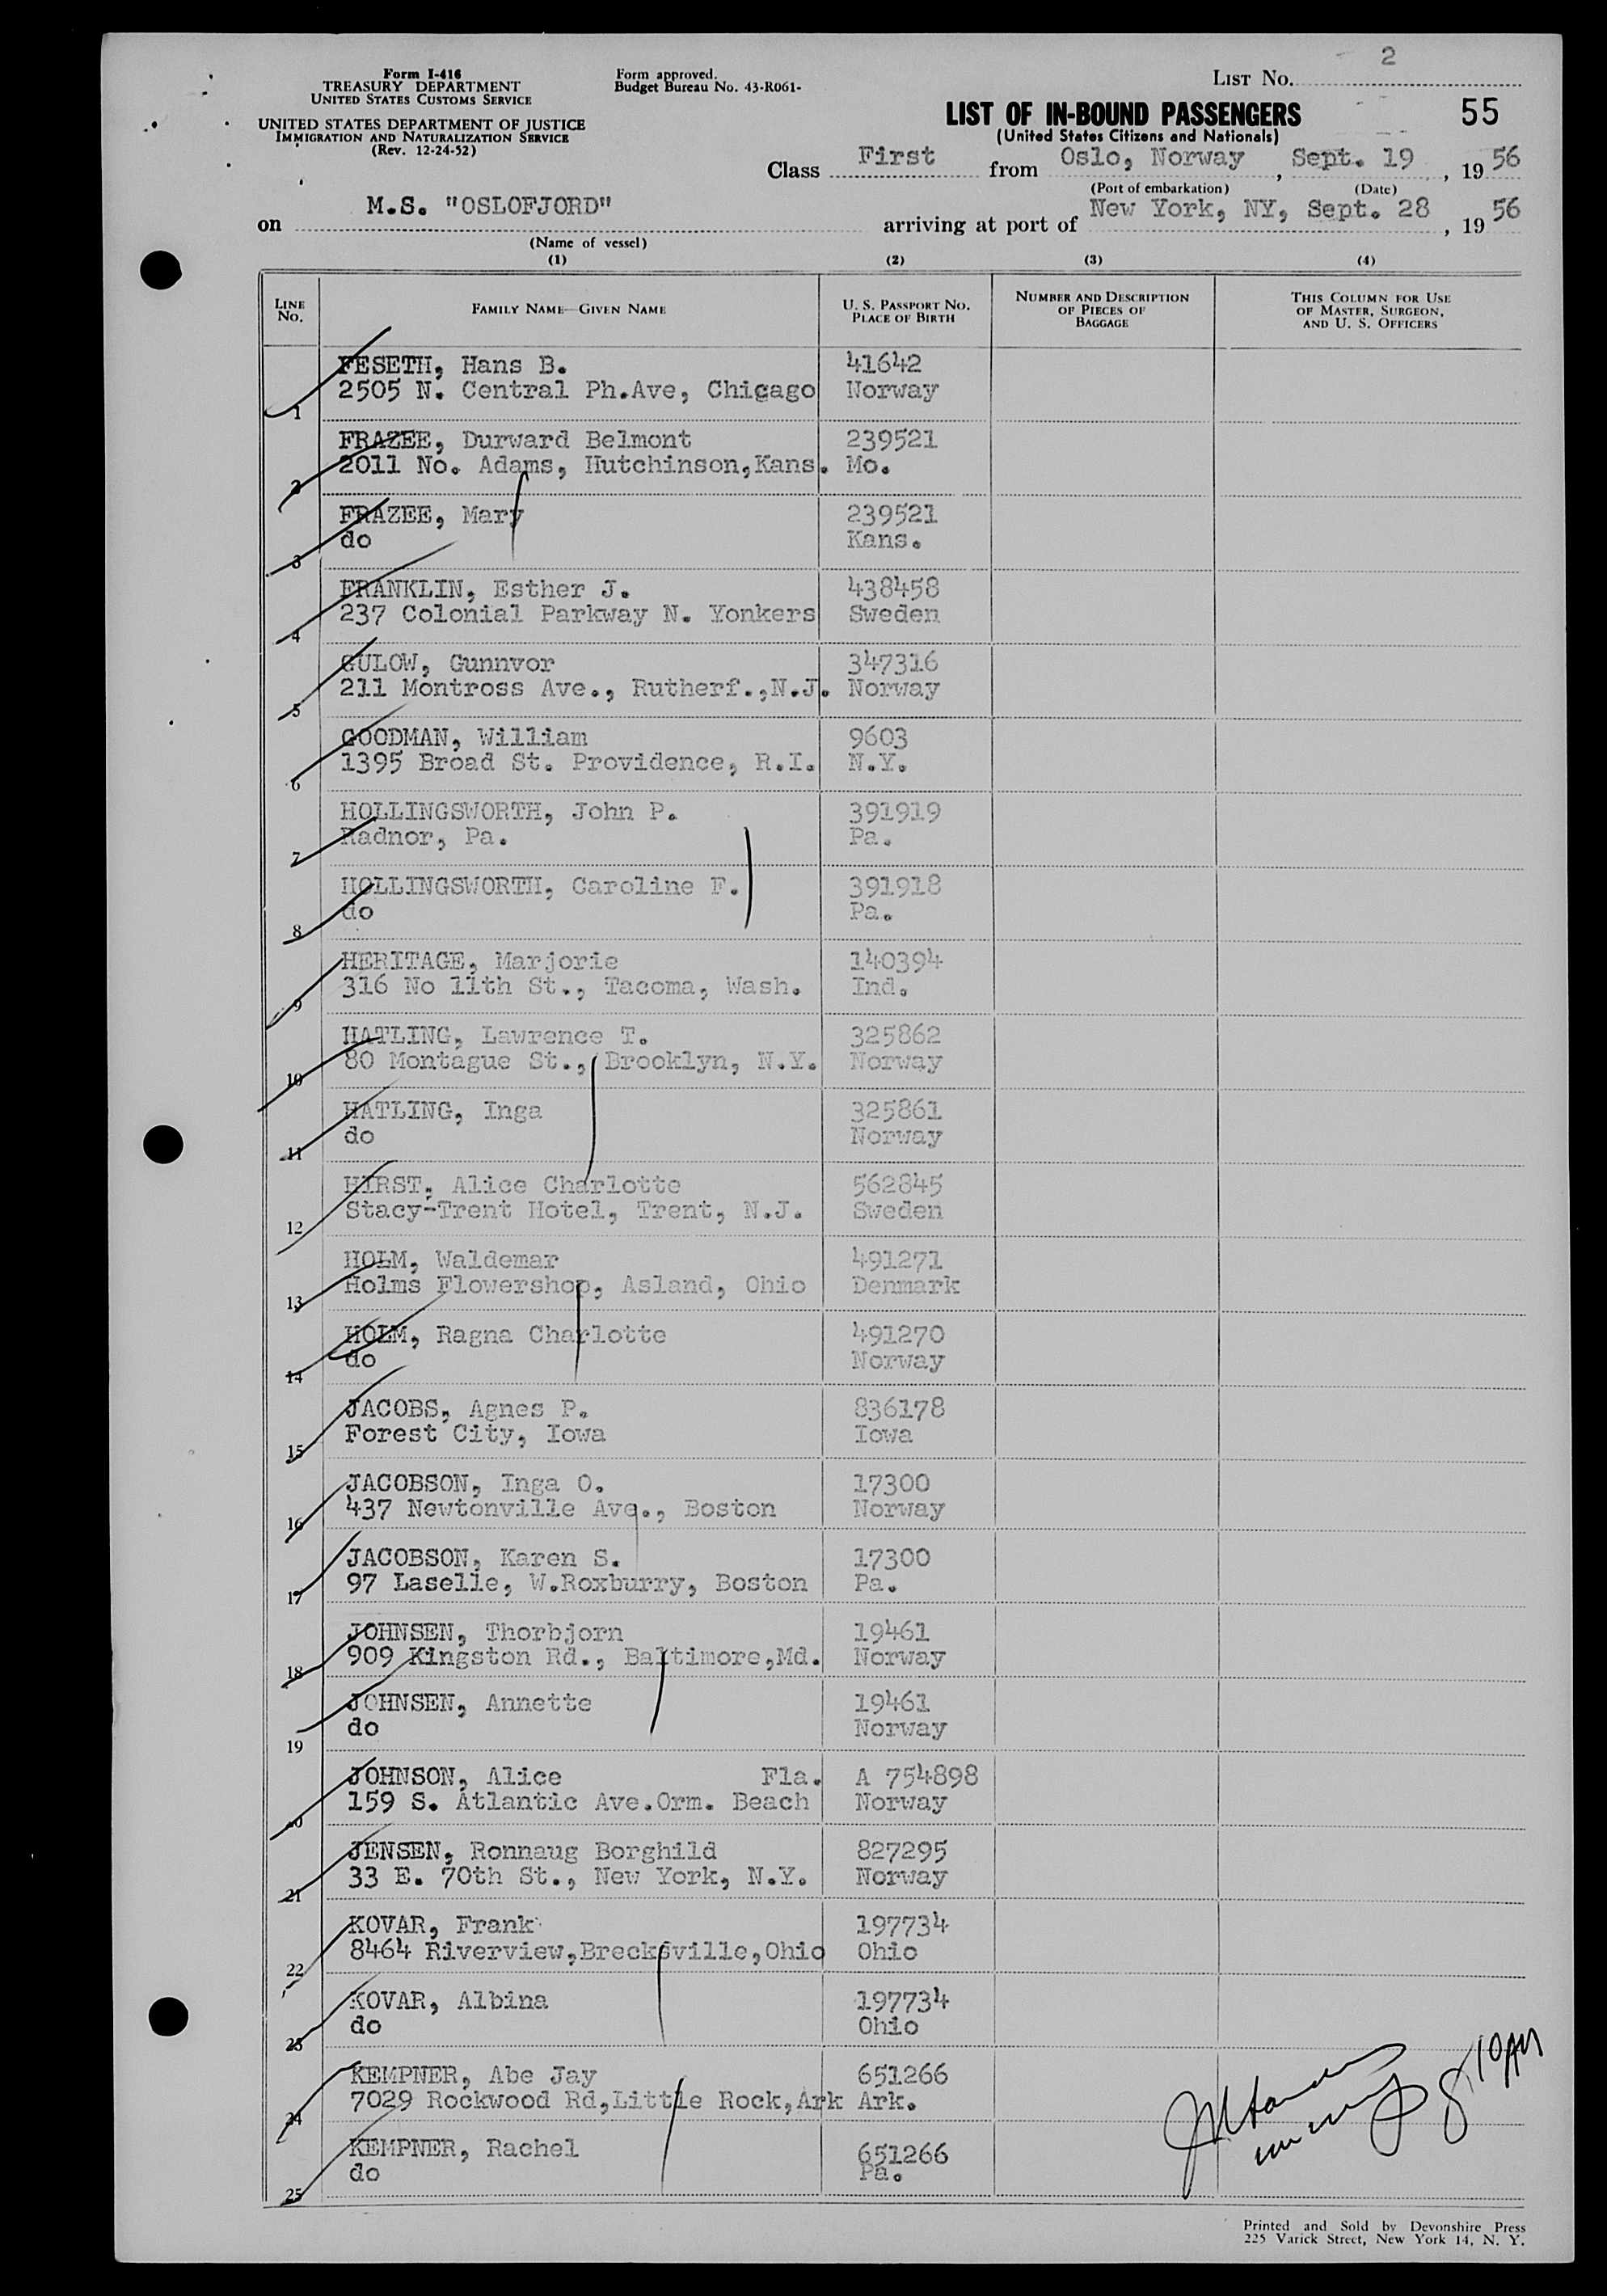 Form I-416
TREASURY DEPARTMENT
UNITED STATES CUSTOMS SERVICE
UNITED STATES DEPARTMENT OF JUSTICE
IMMIGRATION AND NATURALIZATION SERVICE
(Rev. 12-24-52)
Form approved.
Budget Bureau No. 43-R061-
LIST No. 2
LIST OF IN-BOUND PASSENGERS 55
(United States Citizens and Nationals)
Class First from Oslo, Norway, Sept. 19, 1956
(Port of embarkation) (Date)
on M.S. "OSLOFJORD" arriving at port of New York, NY, Sept. 28, 1956
(Name of vessel)
(1) (2) (3) (4)
LINE No. FAMILY NAME—GIVEN NAME U. S. PASSPORT No. PLACE OF BIRTH NUMBER AND DESCRIPTION OF PIECES OF BAGGAGE THIS COLUMN FOR USE OF MASTER, SURGEON, AND U. S. OFFICERS
FESETH, Hans B. 41642
1 2505 N. Central Ph.Ave, Chicago Norway
FRAZEE, Durward Belmont 239521
2 2011 No. Adams, Hutchinson,Kans. Mo.
FRAZEE, Mary 239521
3 do Kans.
FRANKLIN, Esther J. 438458
4 237 Colonial Parkway N. Yonkers Sweden
GULOW, Gunnvor 347316
5 211 Montross Ave., Rutherf.,N.J. Norway
GOODMAN, William 9603
6 1395 Broad St. Providence, R.I. N.Y.
HOLLINGSWORTH, John P. 391919
7 Radnor, Pa. Pa.
HOLLINGSWORTH, Caroline F. 391918
8 do Pa.
HERITAGE, Marjorie 140394
9 316 No 11th St., Tacoma, Wash. Ind.
HATLING, Lawrence T. 325862
10 80 Montague St., Brooklyn, N.Y. Norway
HATLING, Inga 325861
11 do Norway
HIRST, Alice Charlotte 562845
12 Stacy-Trent Hotel, Trent, N.J. Sweden
HOLM, Waldemar 491271
13 Holms Flowershop, Asland, Ohio Denmark
HOLM, Ragna Charlotte 491270
14 do Norway
JACOBS, Agnes P. 836178
15 Forest City, Iowa Iowa
JACOBSON, Inga O. 17300
16 437 Newtonville Ave., Boston Norway
JACOBSON, Karen S. 17300
17 97 Laselle, W.Roxburry, Boston Pa.
JOHNSEN, Thorbjorn 19461
18 909 Kingston Rd., Baltimore,Md. Norway
JOHNSEN, Annette 19461
19 do Norway
JOHNSON, Alice Fla. A 754898
20 159 S. Atlantic Ave.Orm. Beach Norway
JENSEN, Ronnaug Borghild 827295
21 33 E. 70th St., New York, N.Y. Norway
KOVAR, Frank 197734
22 8464 Riverview,Brecksville,Ohio Ohio
KOVAR, Albina 197734
23 do Ohio
KEMPNER, Abe Jay 651266
24 7029 Rockwood Rd,Little Rock,Ark Ark.
KEMPNER, Rachel 651266
25 do Pa.
Printed and Sold by Devonshire Press
225 Varick Street, New York 14, N. Y.